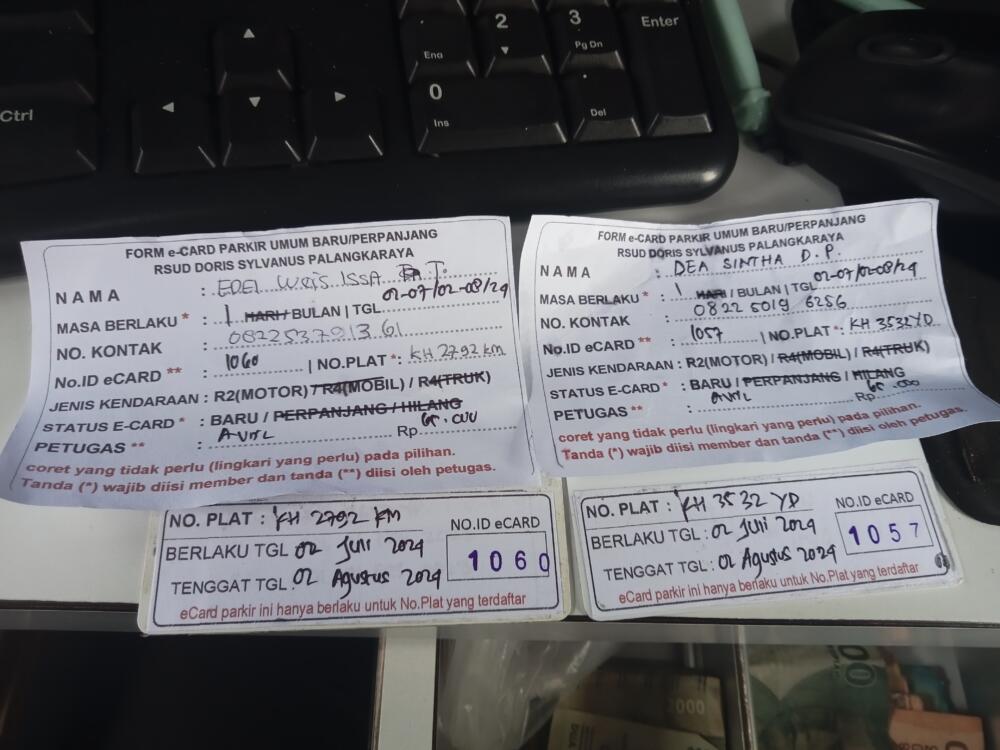 Ctrl
End
2
3
Pg Dn
Enter
0
Ins
Del
FORM e-CARD PARKIR UMUM BARU/PERPANJANG
RSUD DORIS SYLVANUS PALANGKARAYA
NAMA : EDEL WEIS ISSA T.
MASA BERLAKU * : 1 HARI / BULAN | TGL 02-07/02-08/24
NO. KONTAK : 082253791361
No.ID eCARD ** : 1060 | NO.PLAT*: KH 2792 KM
JENIS KENDARAAN : R2(MOTOR) / R4(MOBIL) / R4(TRUK)
STATUS E-CARD * : BARU / PERPANJANG / HILANG
PETUGAS ** : Rp 65.000
coret yang tidak perlu (lingkari yang perlu) pada pilihan.
Tanda (*) wajib diisi member dan tanda (**) diisi oleh petugas.
NO. PLAT : KH 2792 KM
NO.ID eCARD
BERLAKU TGL 02 Juli 2024
1060
TENGGAT TGL: 02 Agustus 2024
eCard parkir ini hanya berlaku untuk No.Plat yang terdaftar
FORM e-CARD PARKIR UMUM BARU/PERPANJANG
RSUD DORIS SYLVANUS PALANGKARAYA
NAMA : DEA SINTHA D.P.
MASA BERLAKU * : 1 HARI / BULAN | TGL 02-07/02-08/24
NO. KONTAK : 0822 5019 6256
No.ID eCARD ** : 1057 | NO.PLAT*: KH 3532 YD
JENIS KENDARAAN : R2(MOTOR) / R4(MOBIL) / R4(TRUK)
STATUS E-CARD * : BARU / PERPANJANG / HILANG
PETUGAS ** : Rp 65.000
coret yang tidak perlu (lingkari yang perlu) pada pilihan.
Tanda (*) wajib diisi member dan tanda (**) diisi oleh petugas.
NO. PLAT : KH 3532 YD
NO.ID eCARD
BERLAKU TGL : 02 Juli 2024
1057
TENGGAT TGL : 02 Agustus 2024
eCard parkir ini hanya berlaku untuk No.Plat yang terdaftar
2000